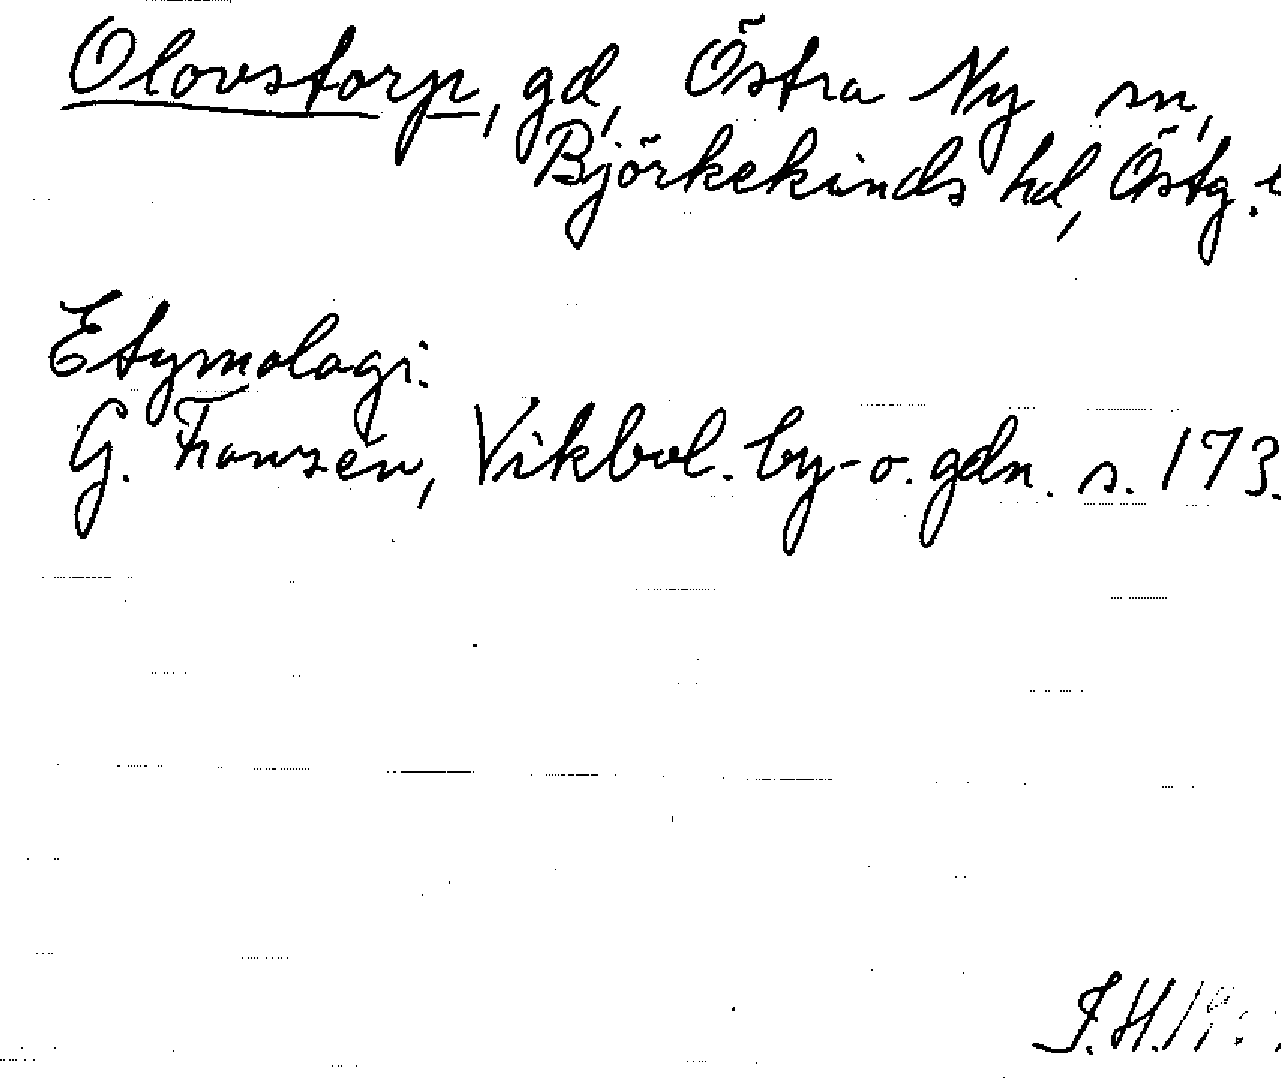 Olovstorp, gd, Östra Ny sn,
Björkekinds hd, Östg.
Etymologi:
G. Franzén, Vikbol. by- o. gdn. s. 173.
J.H. 19